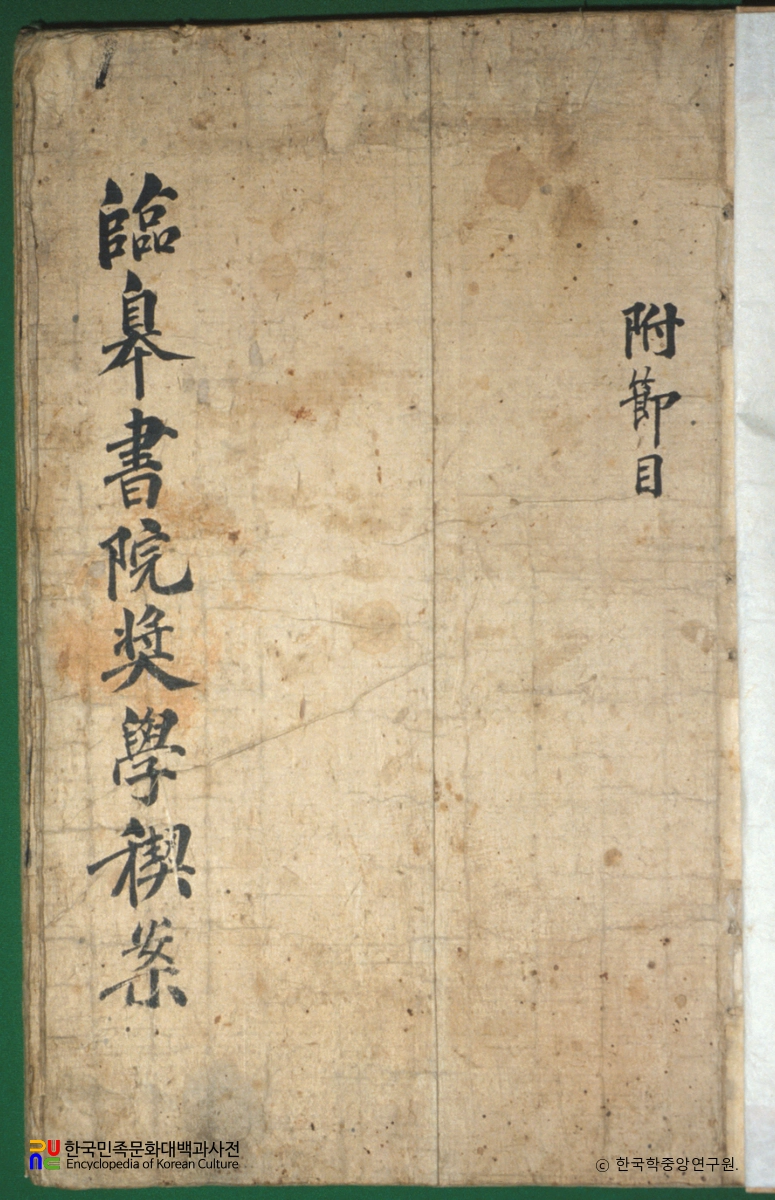 臨臯書院奬學稧案
附節目
한국민족문화대백과사전
Encyclopedia of Korean Culture
© 한국학중앙연구원.